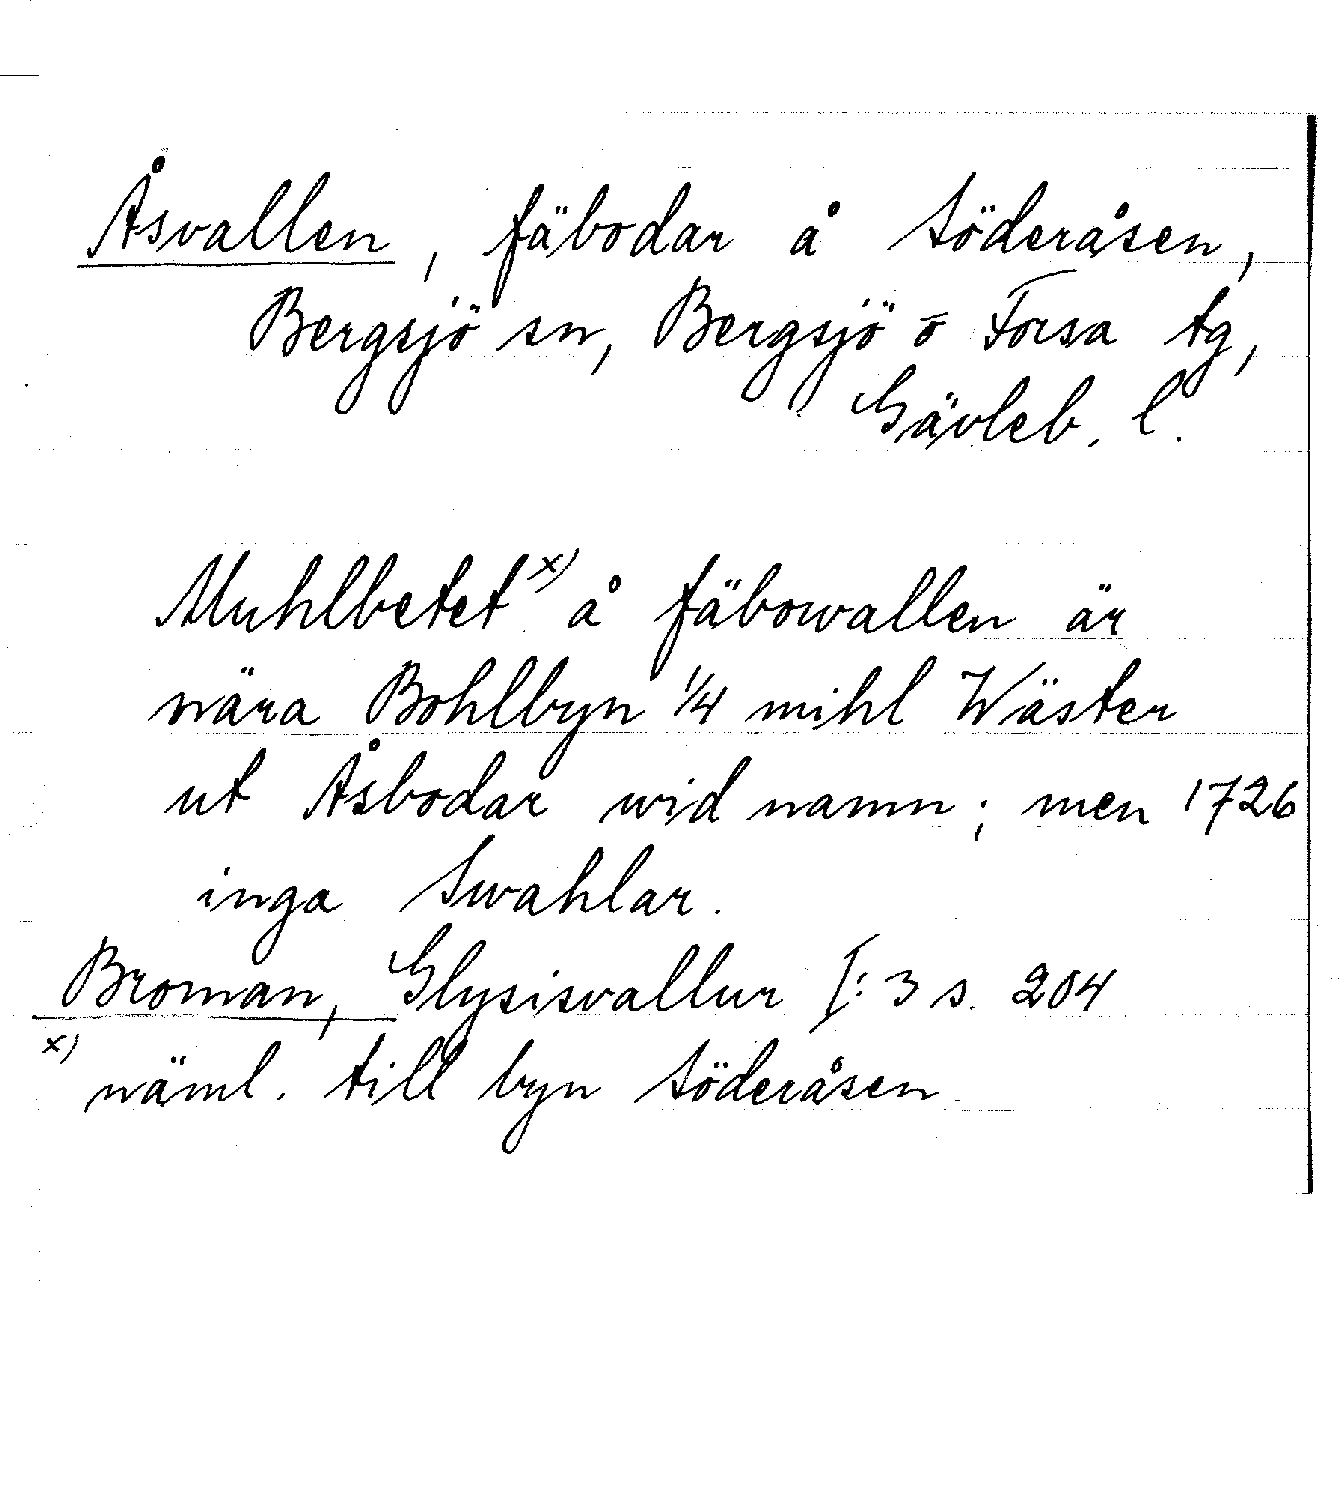 Åsvallen, fäbodar å Söderåsen,
Bergsjö sn, Bergsjö o Forsa tg,
Gävleb. l.
Muhlbetet x) å fäbowallen är
nära Bohlbyn 1/4 mihl Wäster
ut Åsbodar wid namn; men 1726
inga Swahlar.
Broman, Glysisvallur I:3 s. 204
x) näml. till byn Söderåsen